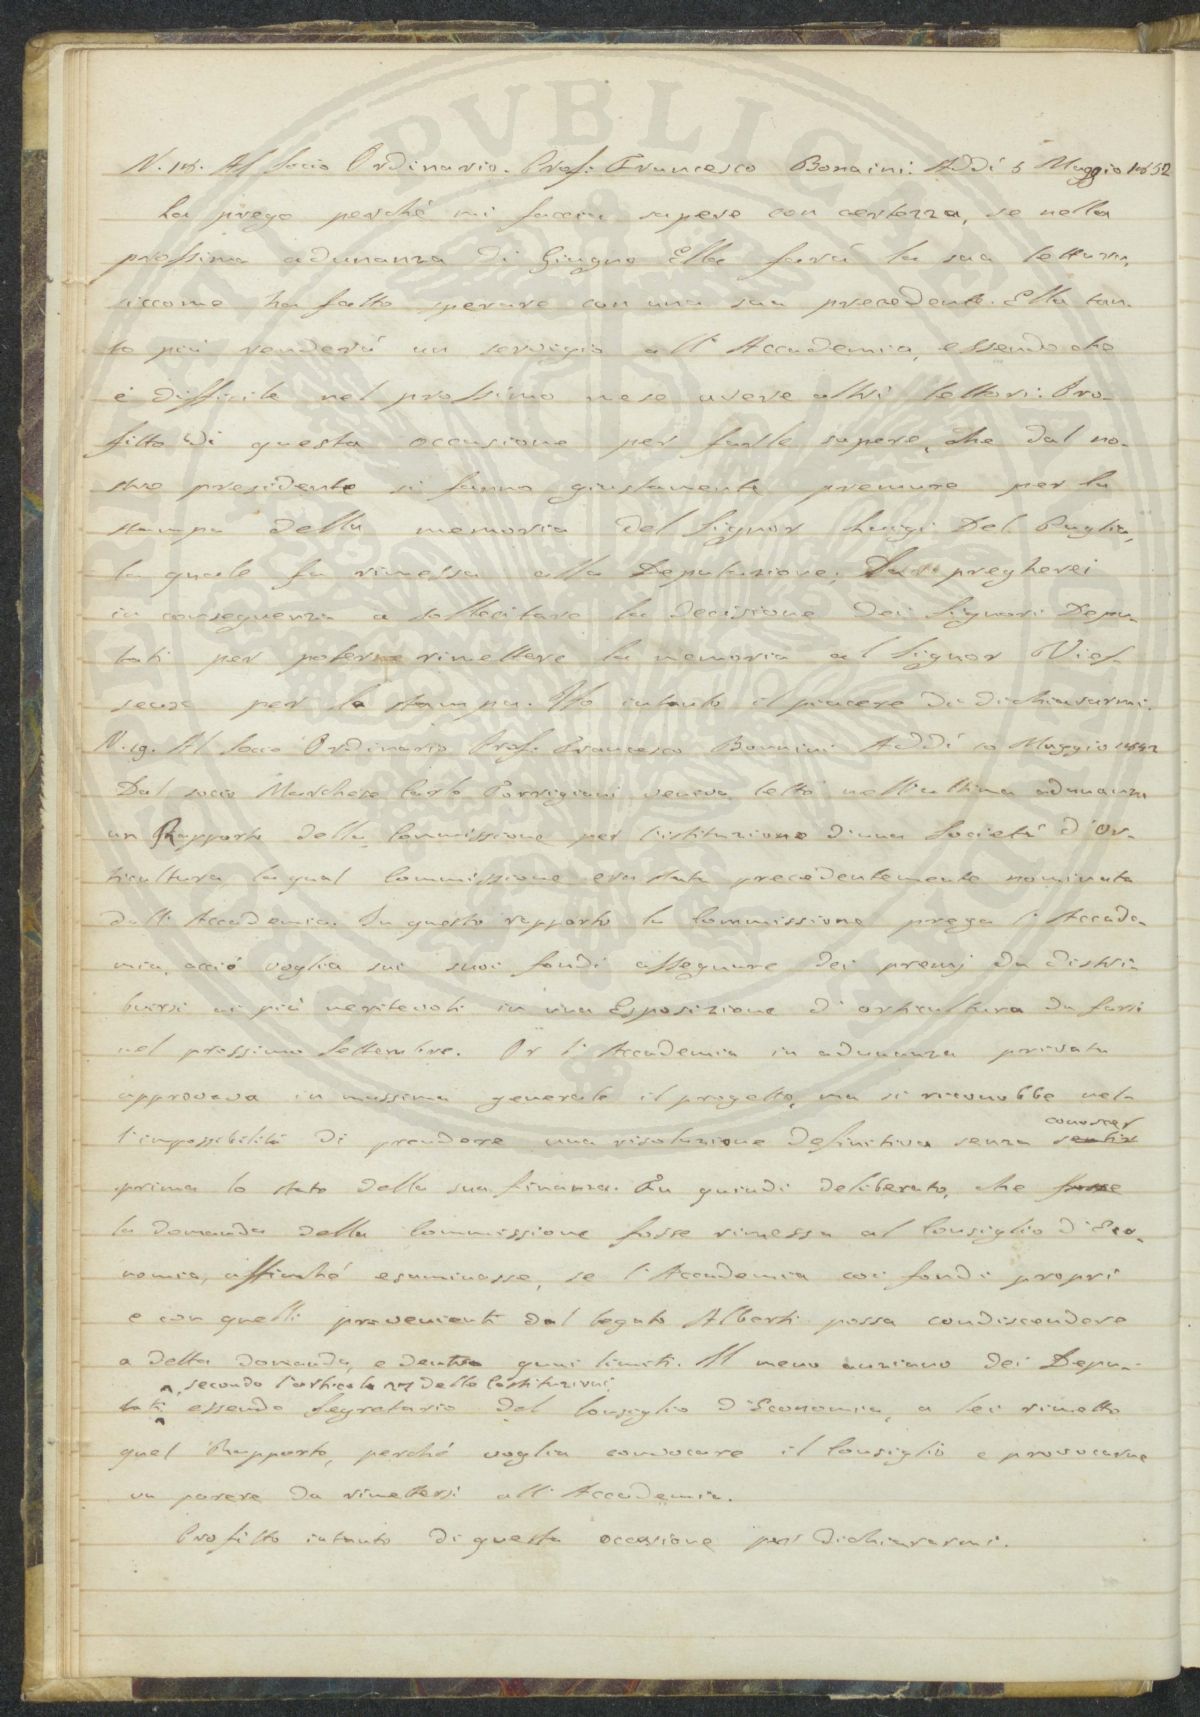 N. 18. Al Socio Ordinario. Prof. Francesco Bonaini. Addì 5 Maggio 1852
La prego perché mi faccia sapere con certezza, se nella
prossima adunanza di Giugno Ella farà la sua lettura,
siccome ha fatto sperare con una sua precedente. Ella tan-
to più renderà un servigio all'Accademia, essendo che
è difficile nel prossimo mese avere altri lettori. Pro-
fitto di questa occasione per farle sapere, che dal no-
stro presidente si fanno giustamente premure per la
stampa della memoria del Signor Luigi Del Puglia,
la quale fu rimessa alla Deputazione; La pregherei
in conseguenza a sollecitare la decisione dei Signori Depu-
tati per poter rimettere la memoria al Signor Vies-
seux per la stampa. Ho intanto il piacere di dichiararmi.
N. 19. Al Socio Ordinario Prof. Francesco Bonaini Addì 10 Maggio 1852
Dal socio Marchese Carlo Torrigiani veniva letto nell'ultima adunanza
un Rapporto della Commissione per l'istituzione di una Società d'Or-
ticultura, la qual Commissione era stata precedentemente nominata
dall'Accademia. In questo rapporto la Commissione prega l'Accade-
mia, acciò voglia sui suoi fondi assegnare dei premj da distri-
buirsi ai più meritevoli in una Esposizione d'orticultura da farsi
nel prossimo Settembre. Or l'Accademia in adunanza privata
approvava in massima generale il progetto, ma si riconobbe nel-
l'impossibilità di prendere una risoluzione definitiva senza sentir conoscer
prima lo stato della sua finanza. Fu quindi deliberato, che fosse
la domanda della Commissione fosse rimessa al Consiglio d'Eco-
nomia, affinché esaminasse, se l'Accademia coi fondi propri
e con quelli provenienti dal legato Alberti possa condiscendere
a detta domanda, e dentro quai limiti. Il meno anziano dei Depu-
tati, secondo l'articolo 27 delle Costituzioni, essendo Segretario del Consiglio d'Economia, a lei rimetto
quel Rapporto, perché voglia convocare il Consiglio e provocarne
un parere da rimettersi all'Accademia.
Profitto intanto di questa occasione per dichiararmi.